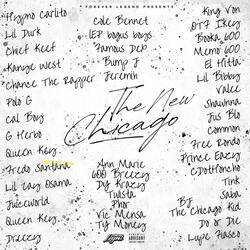 FOREVER LEGEND PRESENTS
Hypno Carlito
Lil Durk
Chief Keef
Kanye West
Chance The Rapper
Polo G
Cal Boy
G Herbo
Queen Key
Fredo Santana
Lil Zay Osama
Juiceworld
Queen Key
Dreezy
Cole Bennet
LEP bogus boys
Famous Dex
Bump J
Jeremih
The New
Chicago
Ann Marie
600 Breezy
DJ Krazy
Twista
Phor
Vic Mensa
Ty Money
King Von
OTF Ikey
Booka 600
Memo 600
El Hitta
Lil Bibby
Valee
Shawnna
Jus Blo
Common
Free Rondo
Prince Eazy
CDotHoncho
Tink
Saba
BJ
The Chicago Kid
Do or Die
Lupe Fiasco